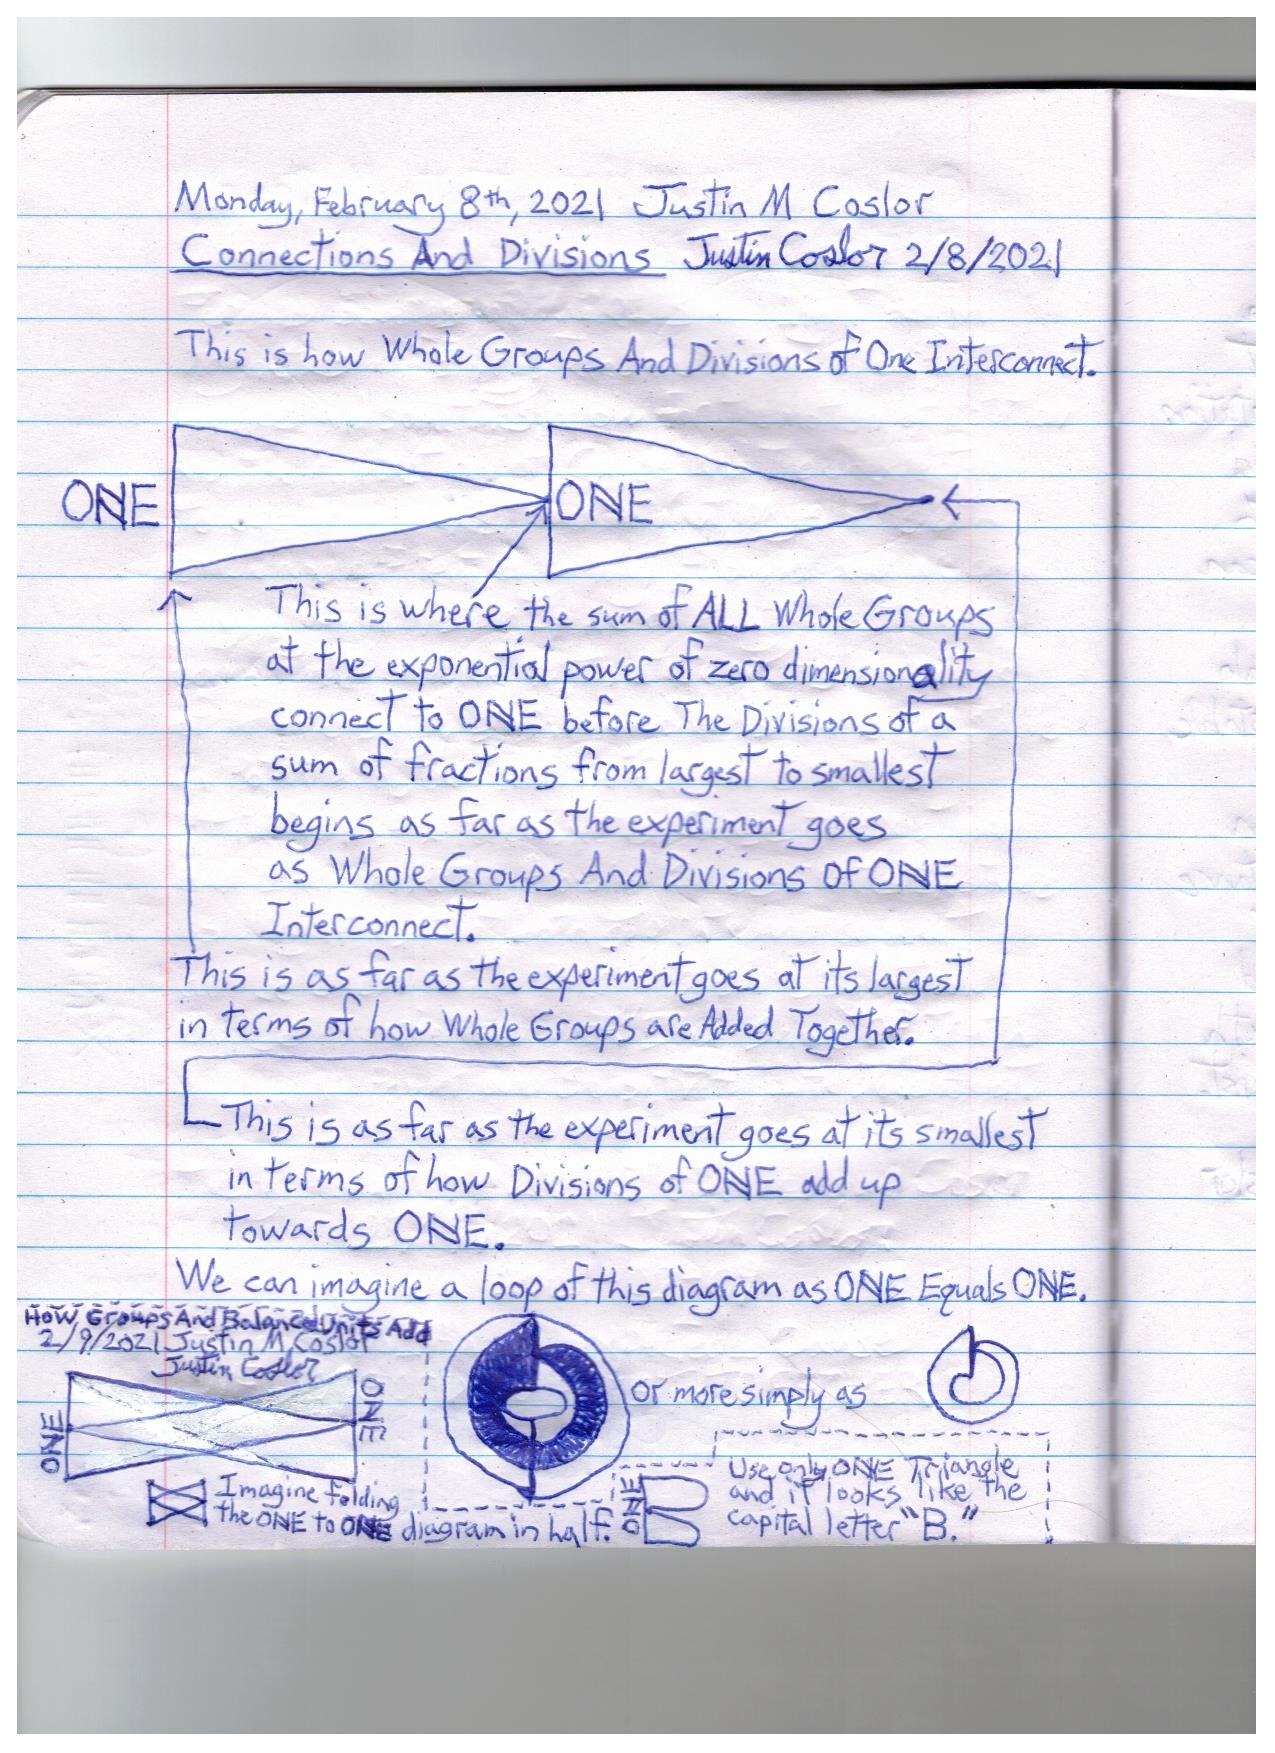 Monday, February 8th, 2021 Justin M Coslor
Connections And Divisions Justin Coslor 2/8/2021
This is how Whole Groups And Divisions of One Interconnect.
ONE
ONE
This is where the sum of ALL Whole Groups
at the exponential power of zero dimensionality
connect to ONE before The Divisions of a
sum of fractions from largest to smallest
begins as far as the experiment goes
as Whole Groups And Divisions Of ONE
Interconnect.
This is as far as the experiment goes at its largest
in terms of how Whole Groups are Added Together.
This is as far as the experiment goes at its smallest
in terms of how Divisions of ONE add up
towards ONE.
We can imagine a loop of this diagram as ONE Equals ONE.
How Groups And Balanced Units Add
2/9/2021 Justin M Coslor
Justin Coslor
ONE
ONE
or more simply as
Imagine folding
the ONE to ONE diagram in half.
ONE
Use only ONE Triangle
and it looks like the
capital letter "B."